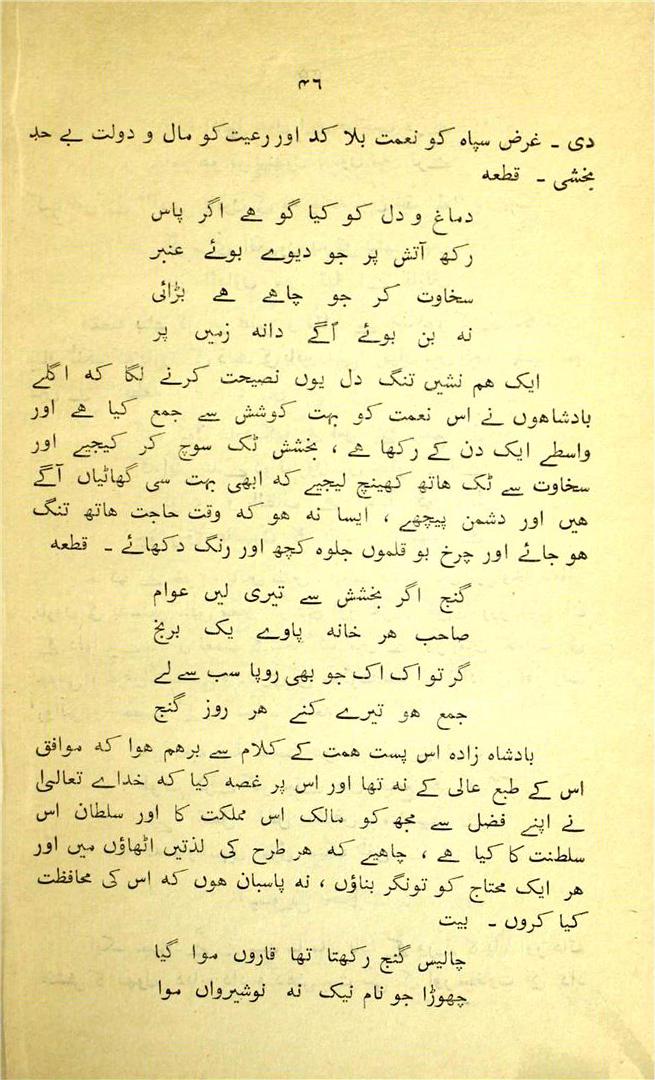 ۴۶
دی ۔ غرض سپاہ کو نعمت بلا کد اور رعیت کو مال و دولت بے حد
بخشی ۔ قطعہ
دماغ و دل کو کیا گو ھے اگر پاس
رکھ آتش پر جو دیوے بوئے عنبر
سخاوت کر جو چاھے ھے بڑائی
نہ بن بوئے اُگے دانہ زمیں پر
ایک ھم نشیں تنگ دل یوں نصیحت کرنے لگا کہ اگلے
بادشاھوں نے اس نعمت کو بہت کوشش سے جمع کیا ھے اور
واسطے ایک دن کے رکھا ھے ، بخشش ٹک سوچ کر کیجیے اور
سخاوت سے ٹک ھاتھ کھینچ لیجیے کہ ابھی بہت سی گھاٹیاں آگے
ھیں اور دشمن پیچھے ، ایسا نہ ھو کہ وقت حاجت ھاتھ تنگ
ھو جائے اور چرخ بو قلموں جلوہ کچھ اور رنگ دکھائے ۔ قطعہ
گنج اگر بخشش سے تیری لیں عوام
صاحب ھر خانہ پاوے یک برنج
گر تو اک اک جو بھی روپا سب سے لے
جمع ھو تیرے کنے ھر روز گنج
بادشاہ زادہ اس پست ھمت کے کلام سے برھم ھوا کہ موافق
اس کے طبع عالی کے نہ تھا اور اس پر غصہ کیا کہ خداے تعالیٰ
نے اپنے فضل سے مجھ کو مالک اس مملکت کا اور سلطان اس
سلطنت کا کیا ھے ، چاھیے کہ ھر طرح کی لذتیں اٹھاؤں میں اور
ھر ایک محتاج کو تونگر بناؤں ، نہ پاسبان ھوں کہ اس کی محافظت
کیا کروں ۔ بیت
چالیس گنج رکھتا تھا قاروں موا گیا
چھوڑا جو نام نیک نہ نوشیرواں موا